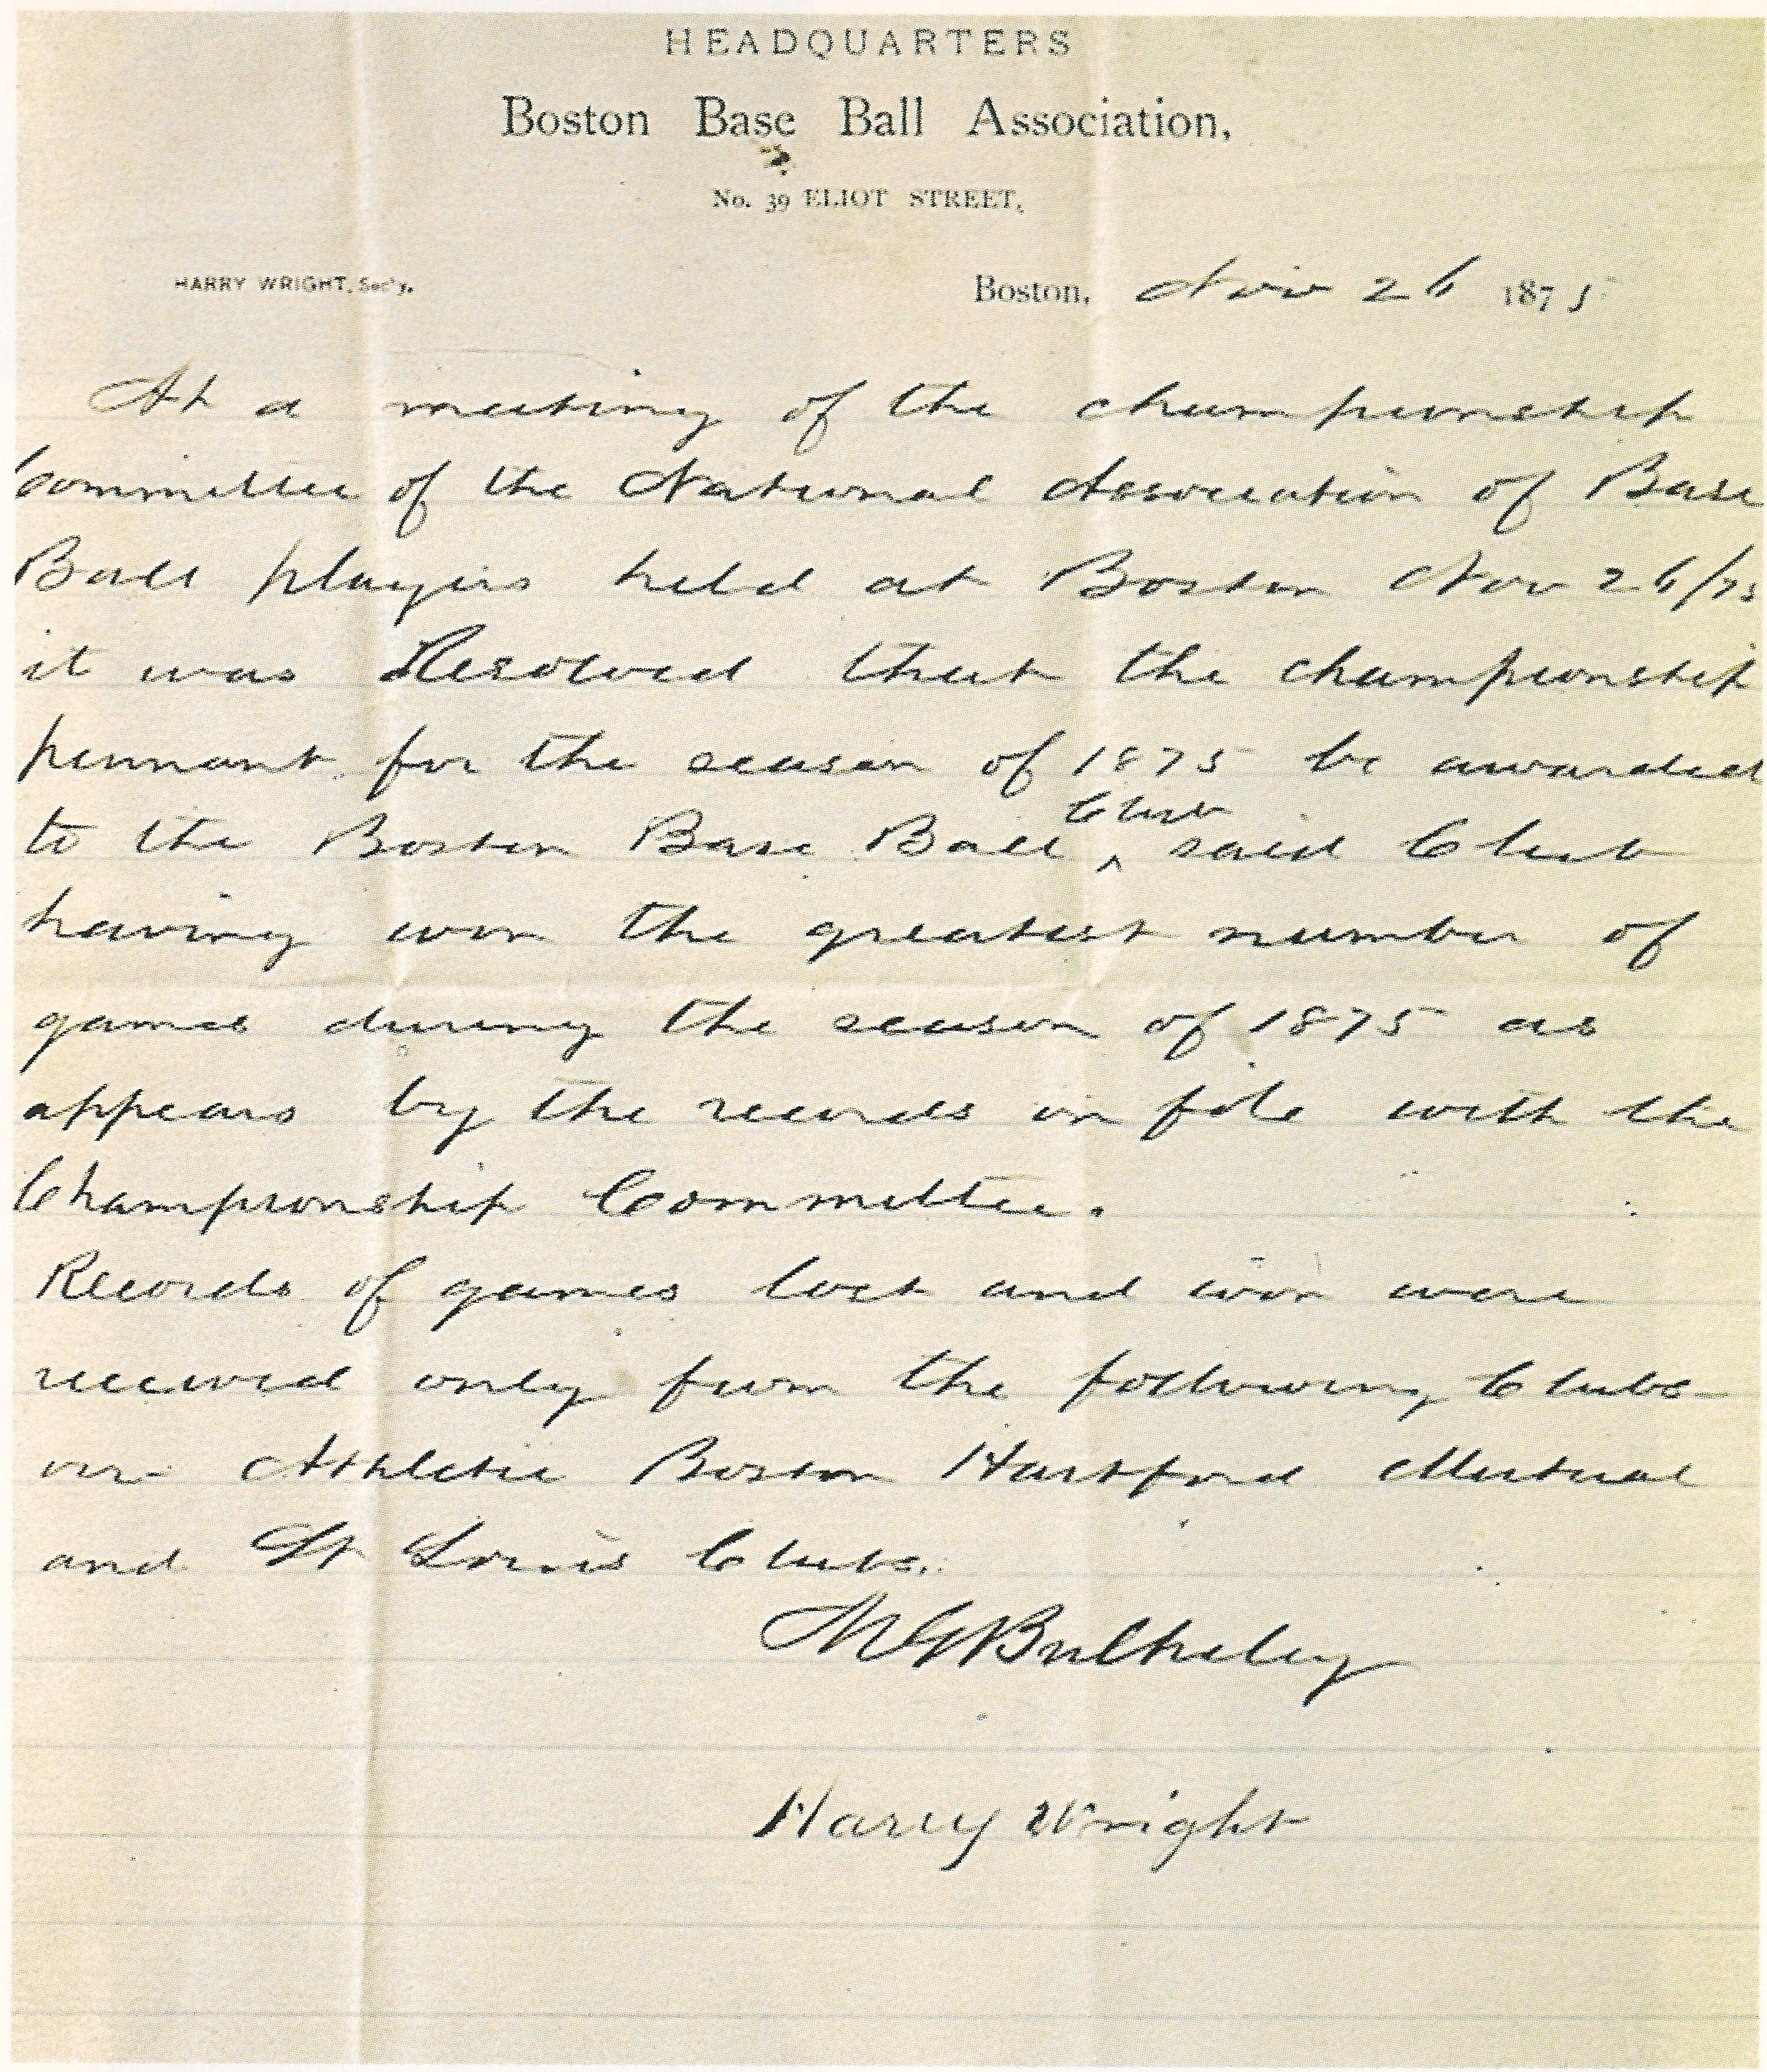 HEADQUARTERS
Boston Base Ball Association,
No. 39 ELIOT STREET,
HARRY WRIGHT, Sec'y.
Boston, Nov 26 1875
At a meeting of the championship
Committee of the National Association of Base
Ball players held at Boston Nov 26/75
it was Resolved that the championship
pennant for the season of 1875 be awarded
to the Boston Base Ball ^Club said Club
having won the greatest number of
games during the season of 1875 as
appears by the records on file with the
Championship Committee.
Records of games lost and won were
received only from the following Clubs
viz- Athletic Boston Hartford Mutual
and St Louis Clubs.
M G Bulkeley
Harry Wright